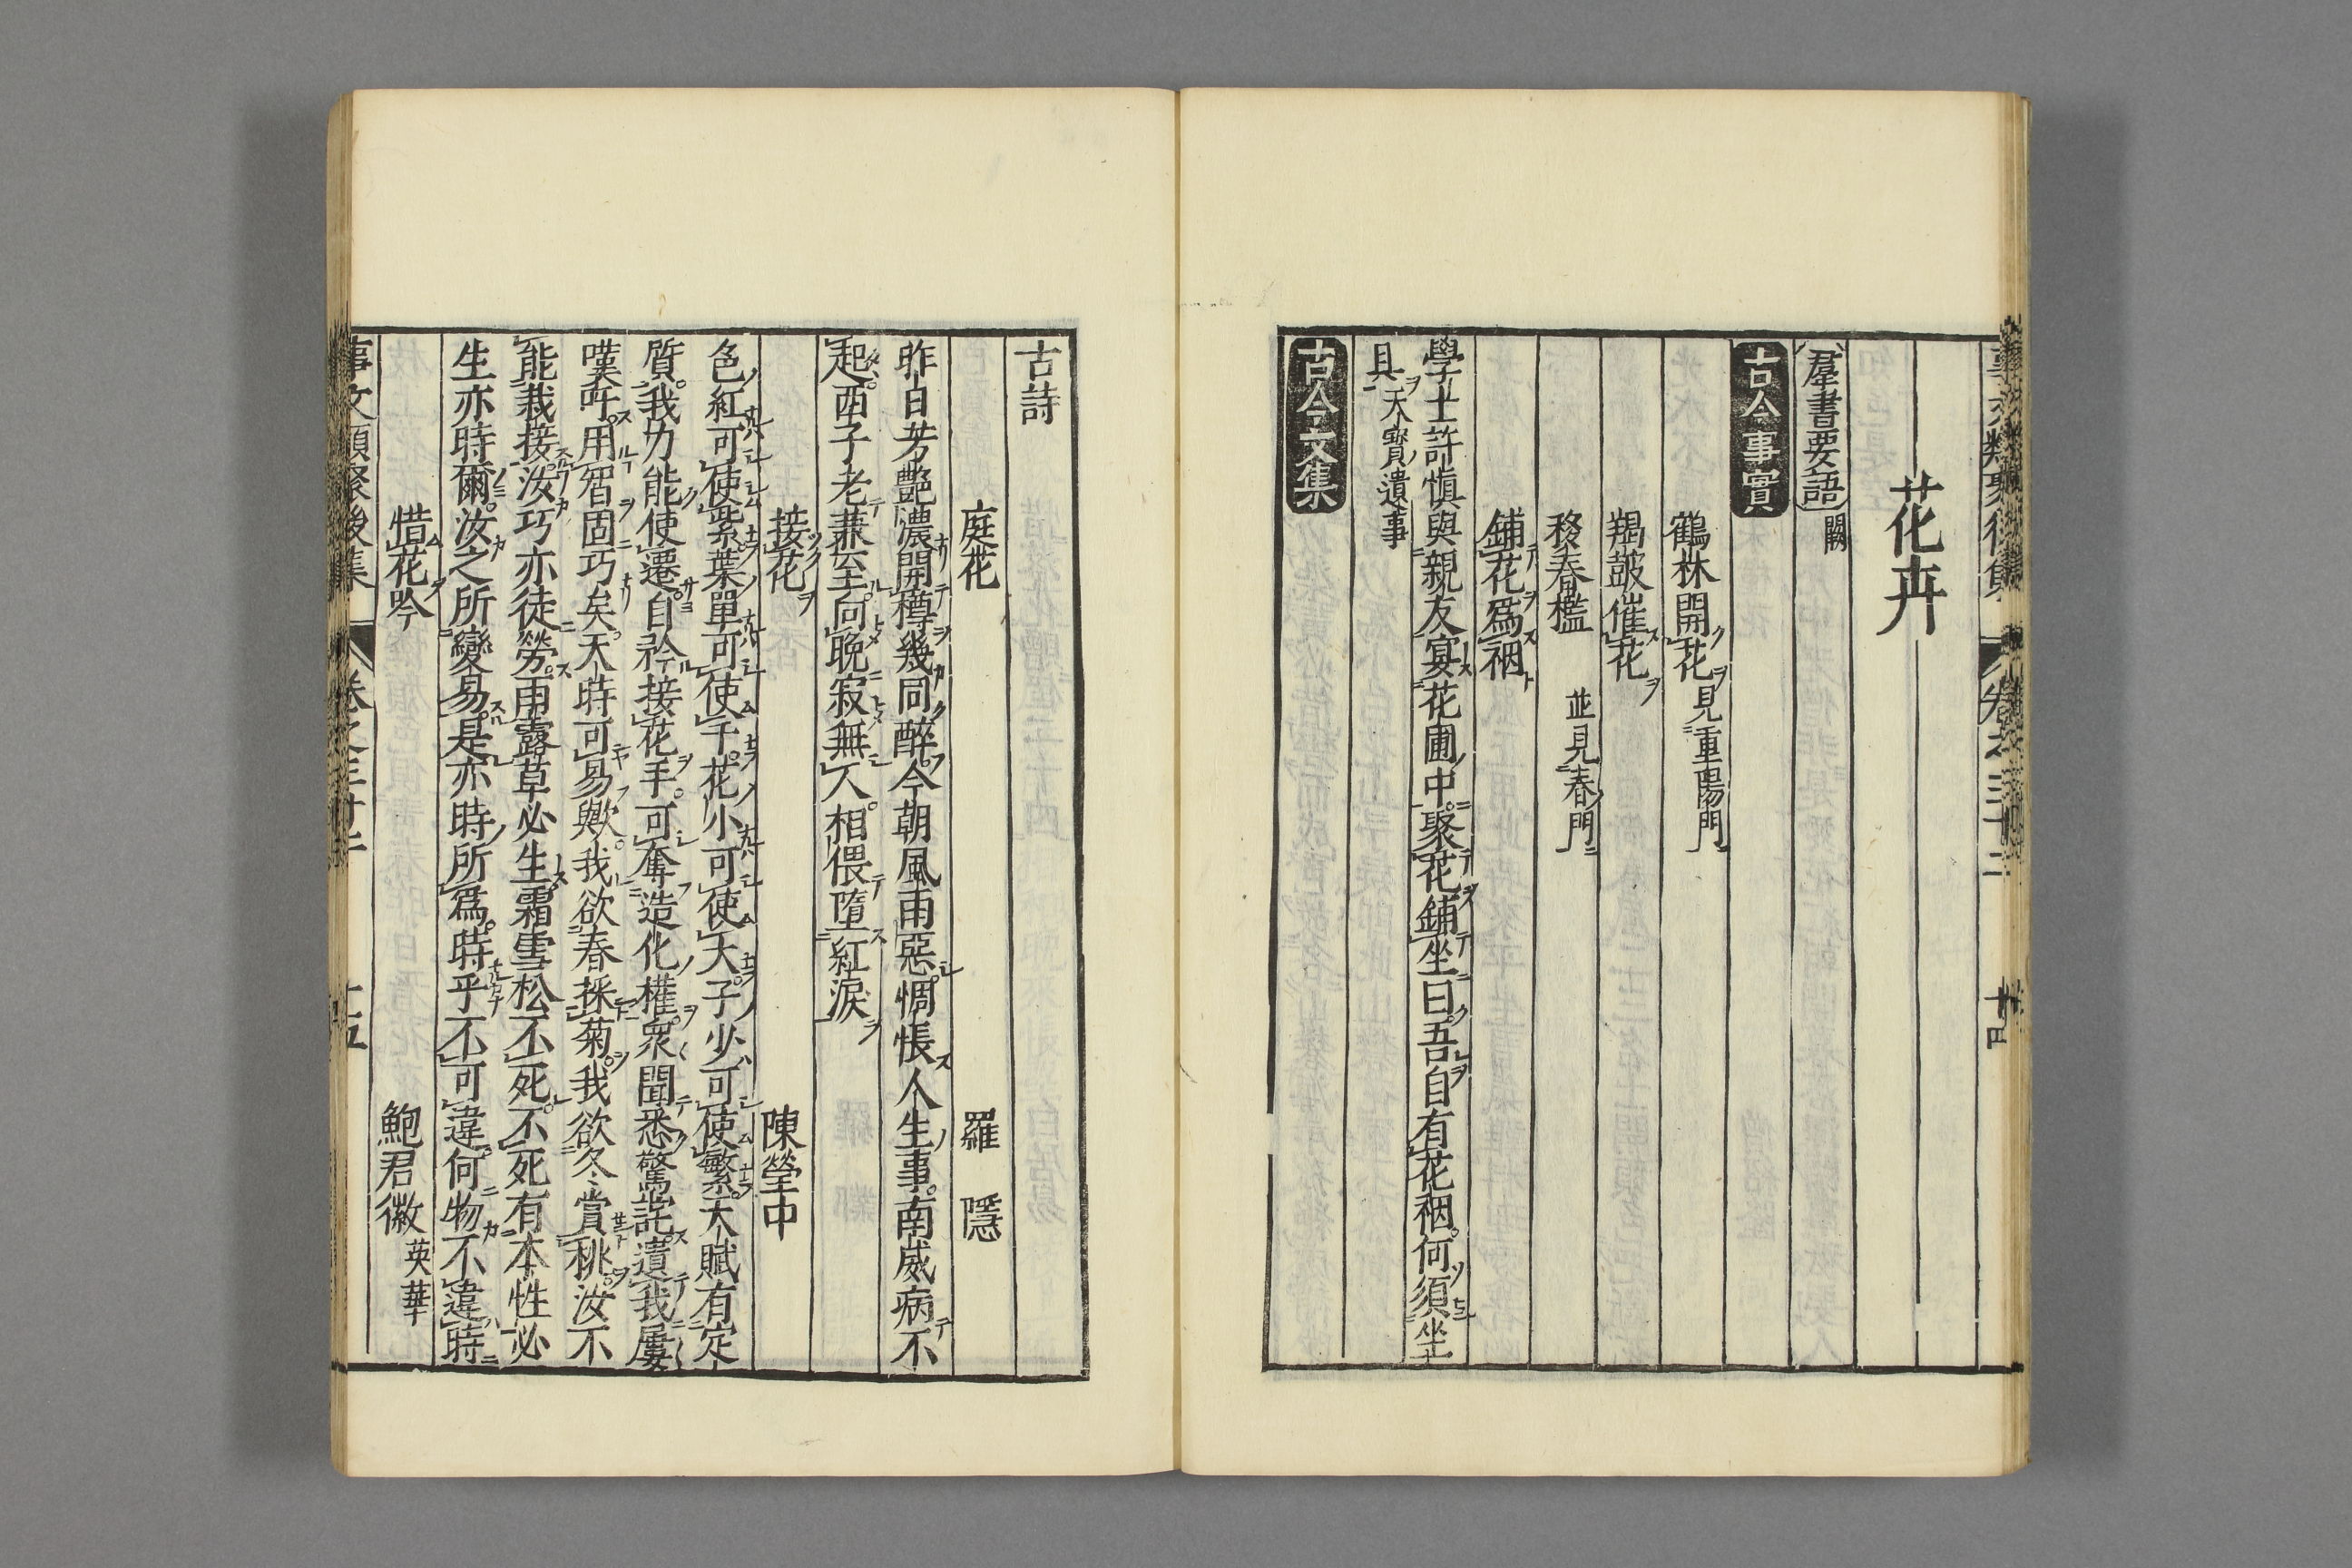 花卉
羣書要語 闕
古今事實
鶴林開花 見重陽門
羯鼓催花
移春檻 並見春門
鋪花爲裀
學士許愼與親友宴花圃中聚花鋪坐曰吾自有花裀何須坐
具 天寶遺事
古今文集
古詩
庭花 羅隱
昨日芳艷濃開樽幾同醉今朝風雨惡惆悵人生事南威病不
起西子老兼至向晩寂無人相偎墮紅淚
接花 陳瑩中
色紅可使紫葉單可使千花小可使大子少可使繁天賦有定
質我力能使遷自矜接花手可奪造化權衆聞悉驚詫遺我屢
嘆吁用智固巧矣天時可易歟我欲春採菊我欲冬賞桃汝不
能栽接汝巧亦徒勞雨露草必生霜雪松不死不死有本性必
生亦時爾汝之所變易是亦時所爲時乎不可違何物不違時
惜花吟 鮑君徽 英華
事文類聚後集 卷之三十二 十五